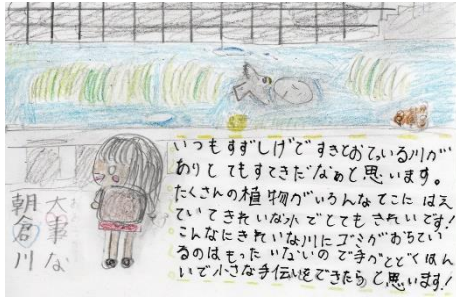 いつもすずしげですきとおている川が
ありとてもすてきだなぁと思います。
たくさんの植物がいろんなとこにはえ
ていてきれいな水でとてもきれいです!
こんなにきれいな川にゴミがおちてい
るのはもったいないので手がとどくはん
いで小さな手伝いをできたらと思います!
大事な
朝倉川